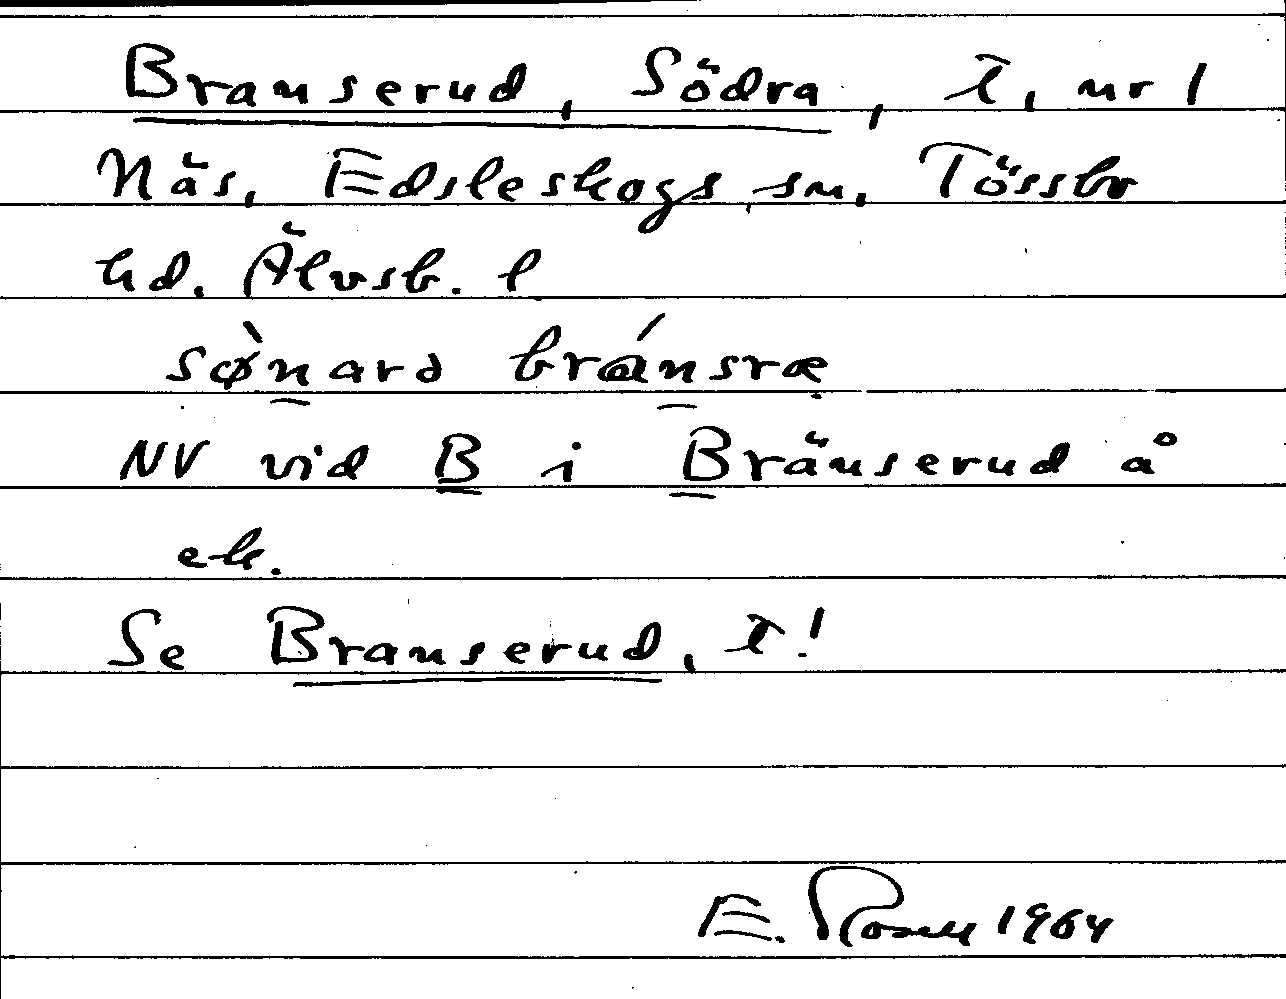 Branserud, Södra, T, nr 1
Näs, Edsleskogs sn, Tössbo
hd. Älvsb. l
sø̀narə bránsræ
NV vid B i Bränserud å
ek.
Se Branserud, T!
E. Rosell 1964